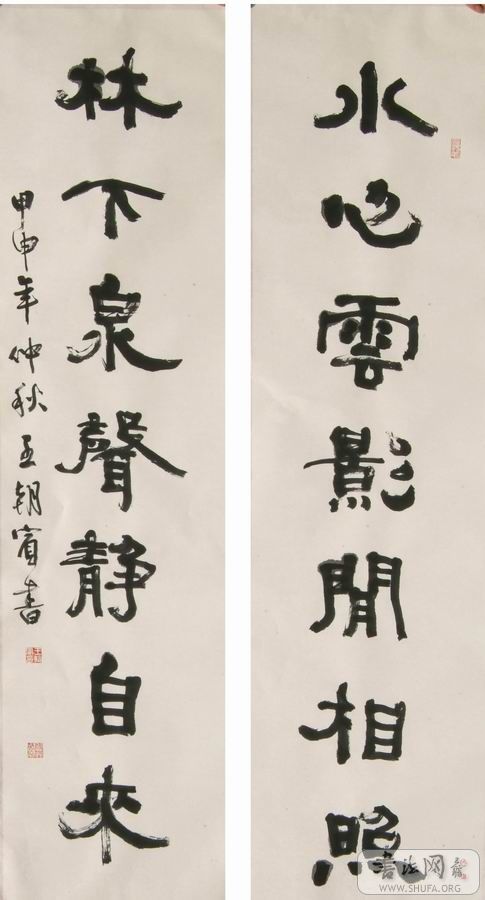 水心雲影閒相照
林下泉聲靜自来
甲申年仲秋王朝賓書
書法网
WWW.SHUFA.ORG